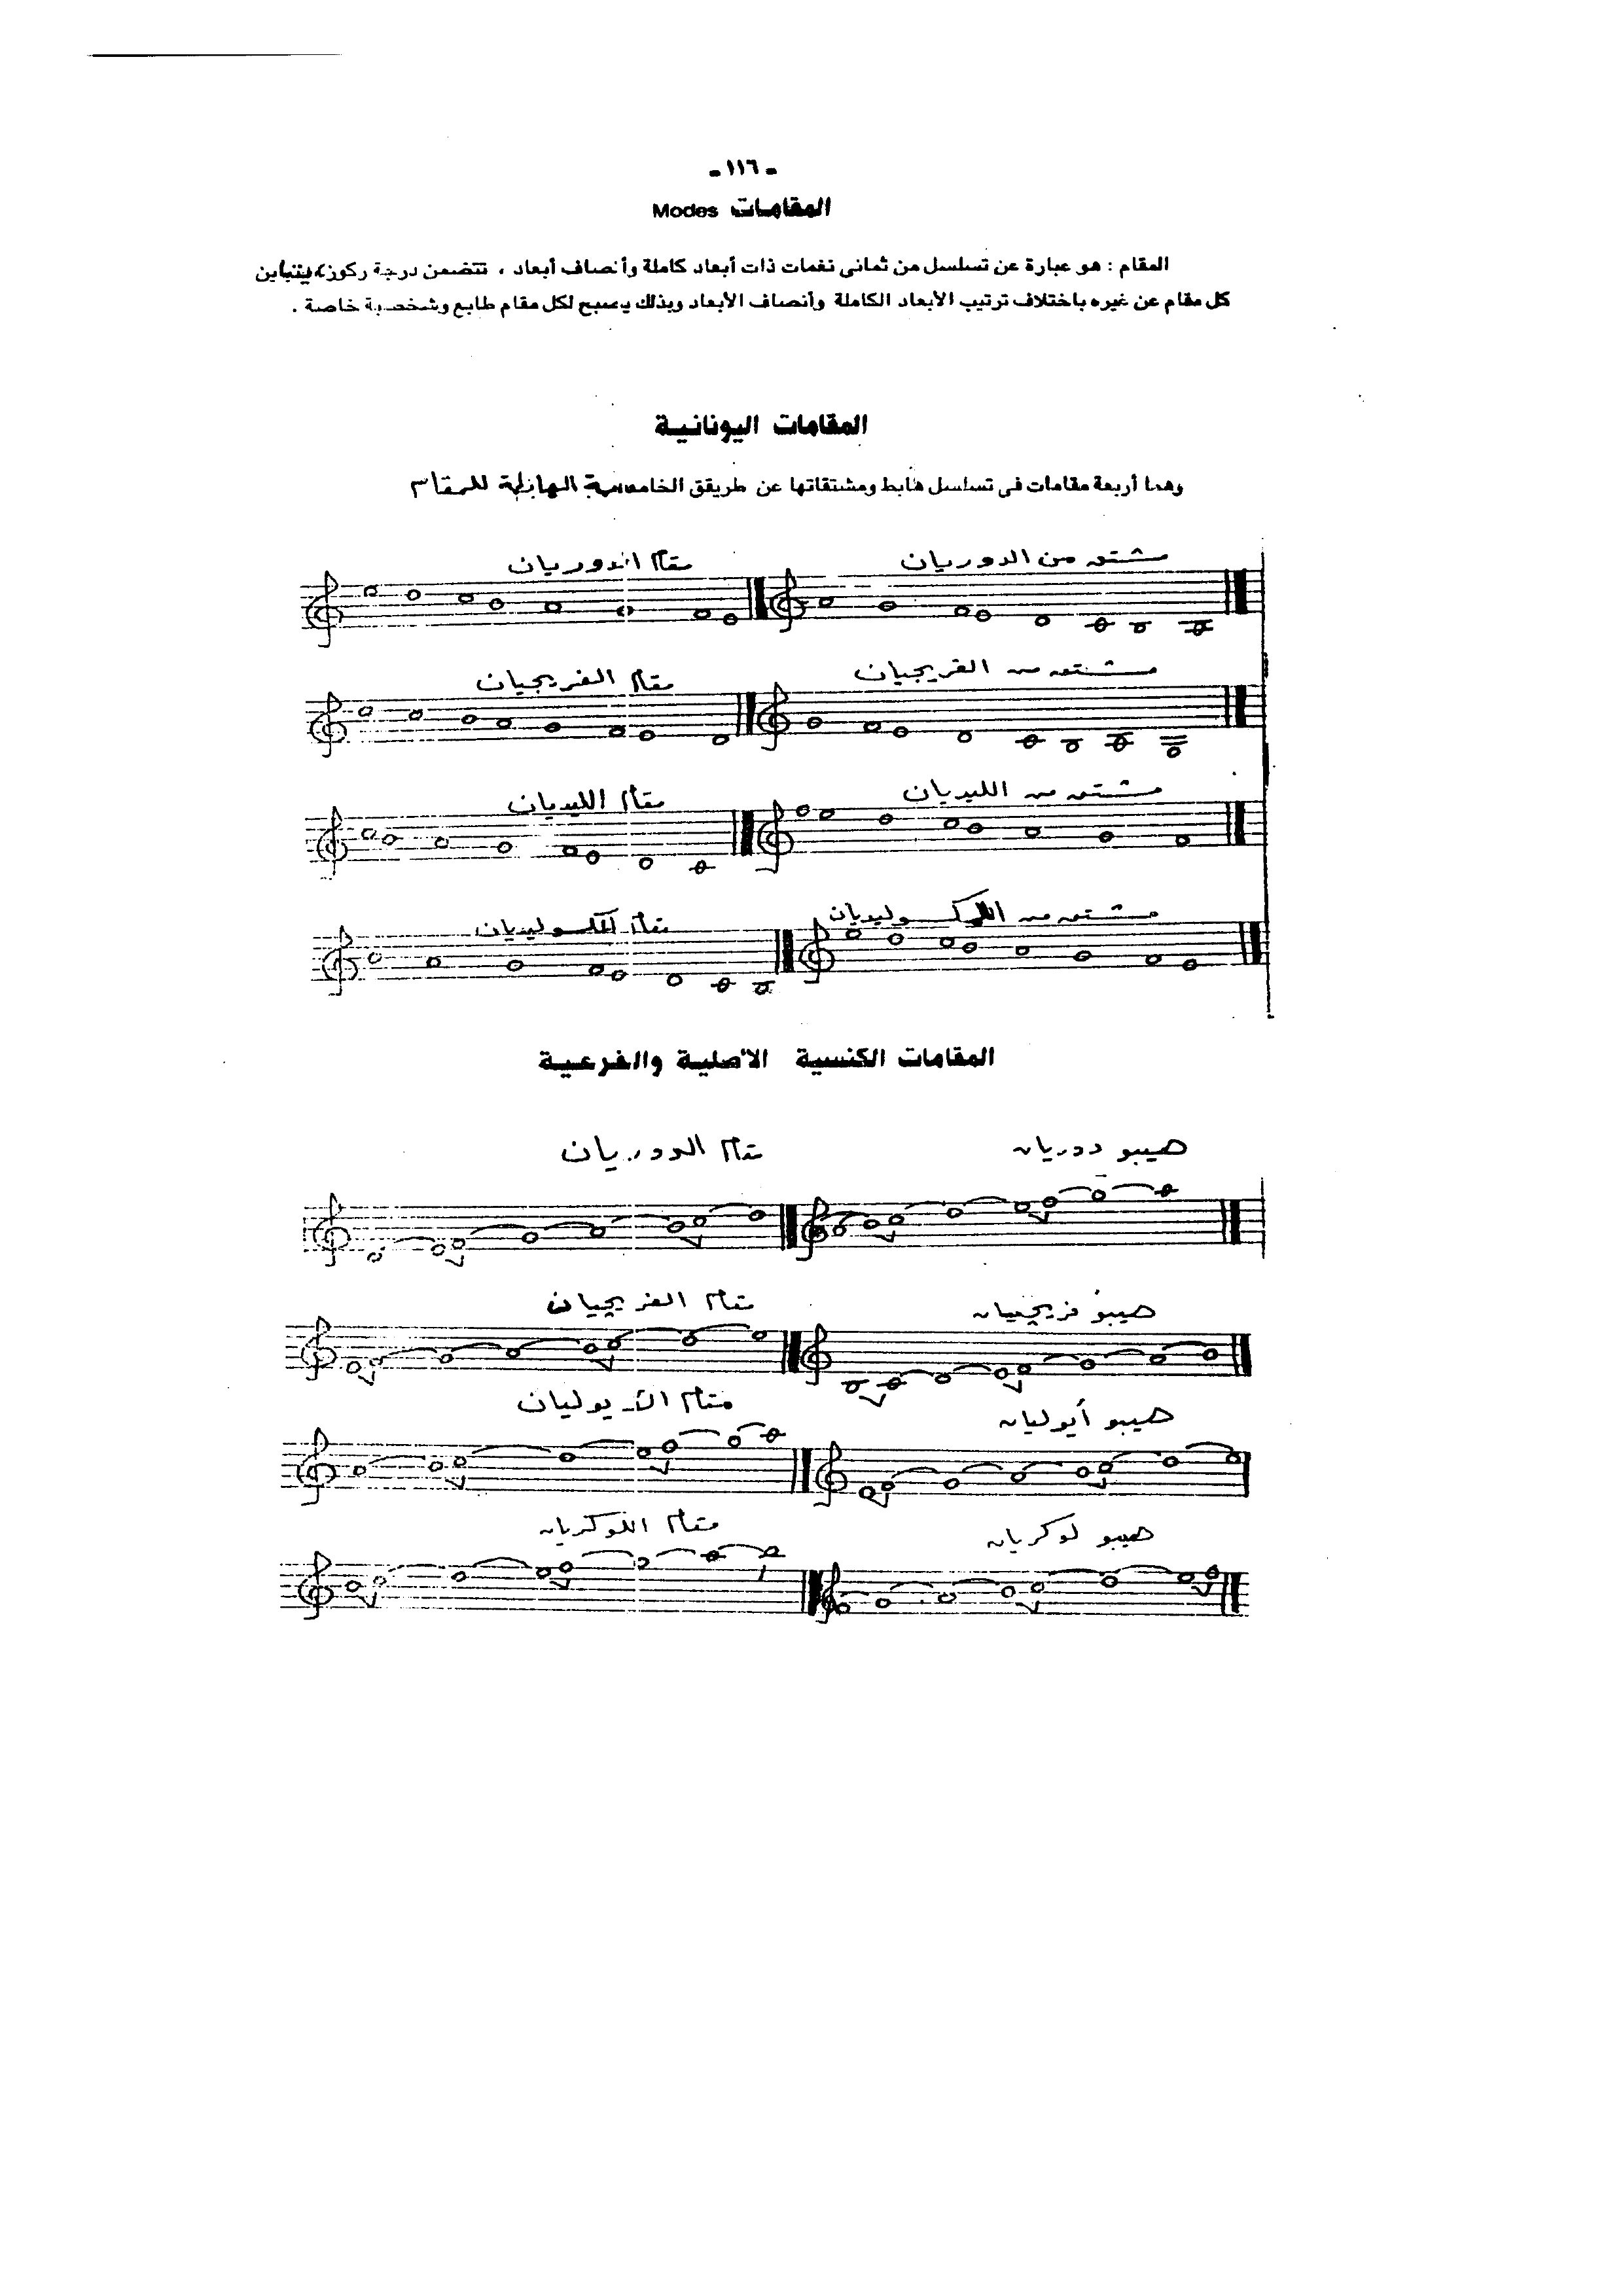 - ١١٦ -
المقامات Modes
المقام : هو عبارة عن تسلسل من ثمانى نغمات ذات أبعاد كاملة وأنصاف أبعاد ، تتضمن درجة ركوز، يتباين
كل مقام عن غيره باختلاف ترتيب الأبعاد الكاملة وأنصاف الأبعاد وبذلك يصبح لكل مقام طابع وشخصية خاصة .
المقامات اليونانية
وهما أربعة مقامات فى تسلسل هابط ومشتقاتها عن طريق الخامسة الهابطة للمقام
مقام الدوريان
مشتق من الدوريان
مقام الفريجيان
مشتق من الفريجيان
مقام الليديان
مشتق من الليديان
مقام المكسوليديان
مشتق من المكسوليديان
المقامات الكنسية الأصلية والفرعية
مقام الدوريان
هيبو دوريان
مقام الفريجيان
هيبو فريجيان
مقام الأيوليان
هيبو أيوليان
مقام اللوكريان
هيبو لوكريان